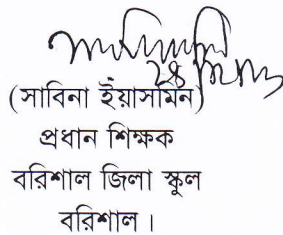 (সাবিনা ইয়াসমিন)
প্রধান শিক্ষক
বরিশাল জিলা স্কুল
বরিশাল ।